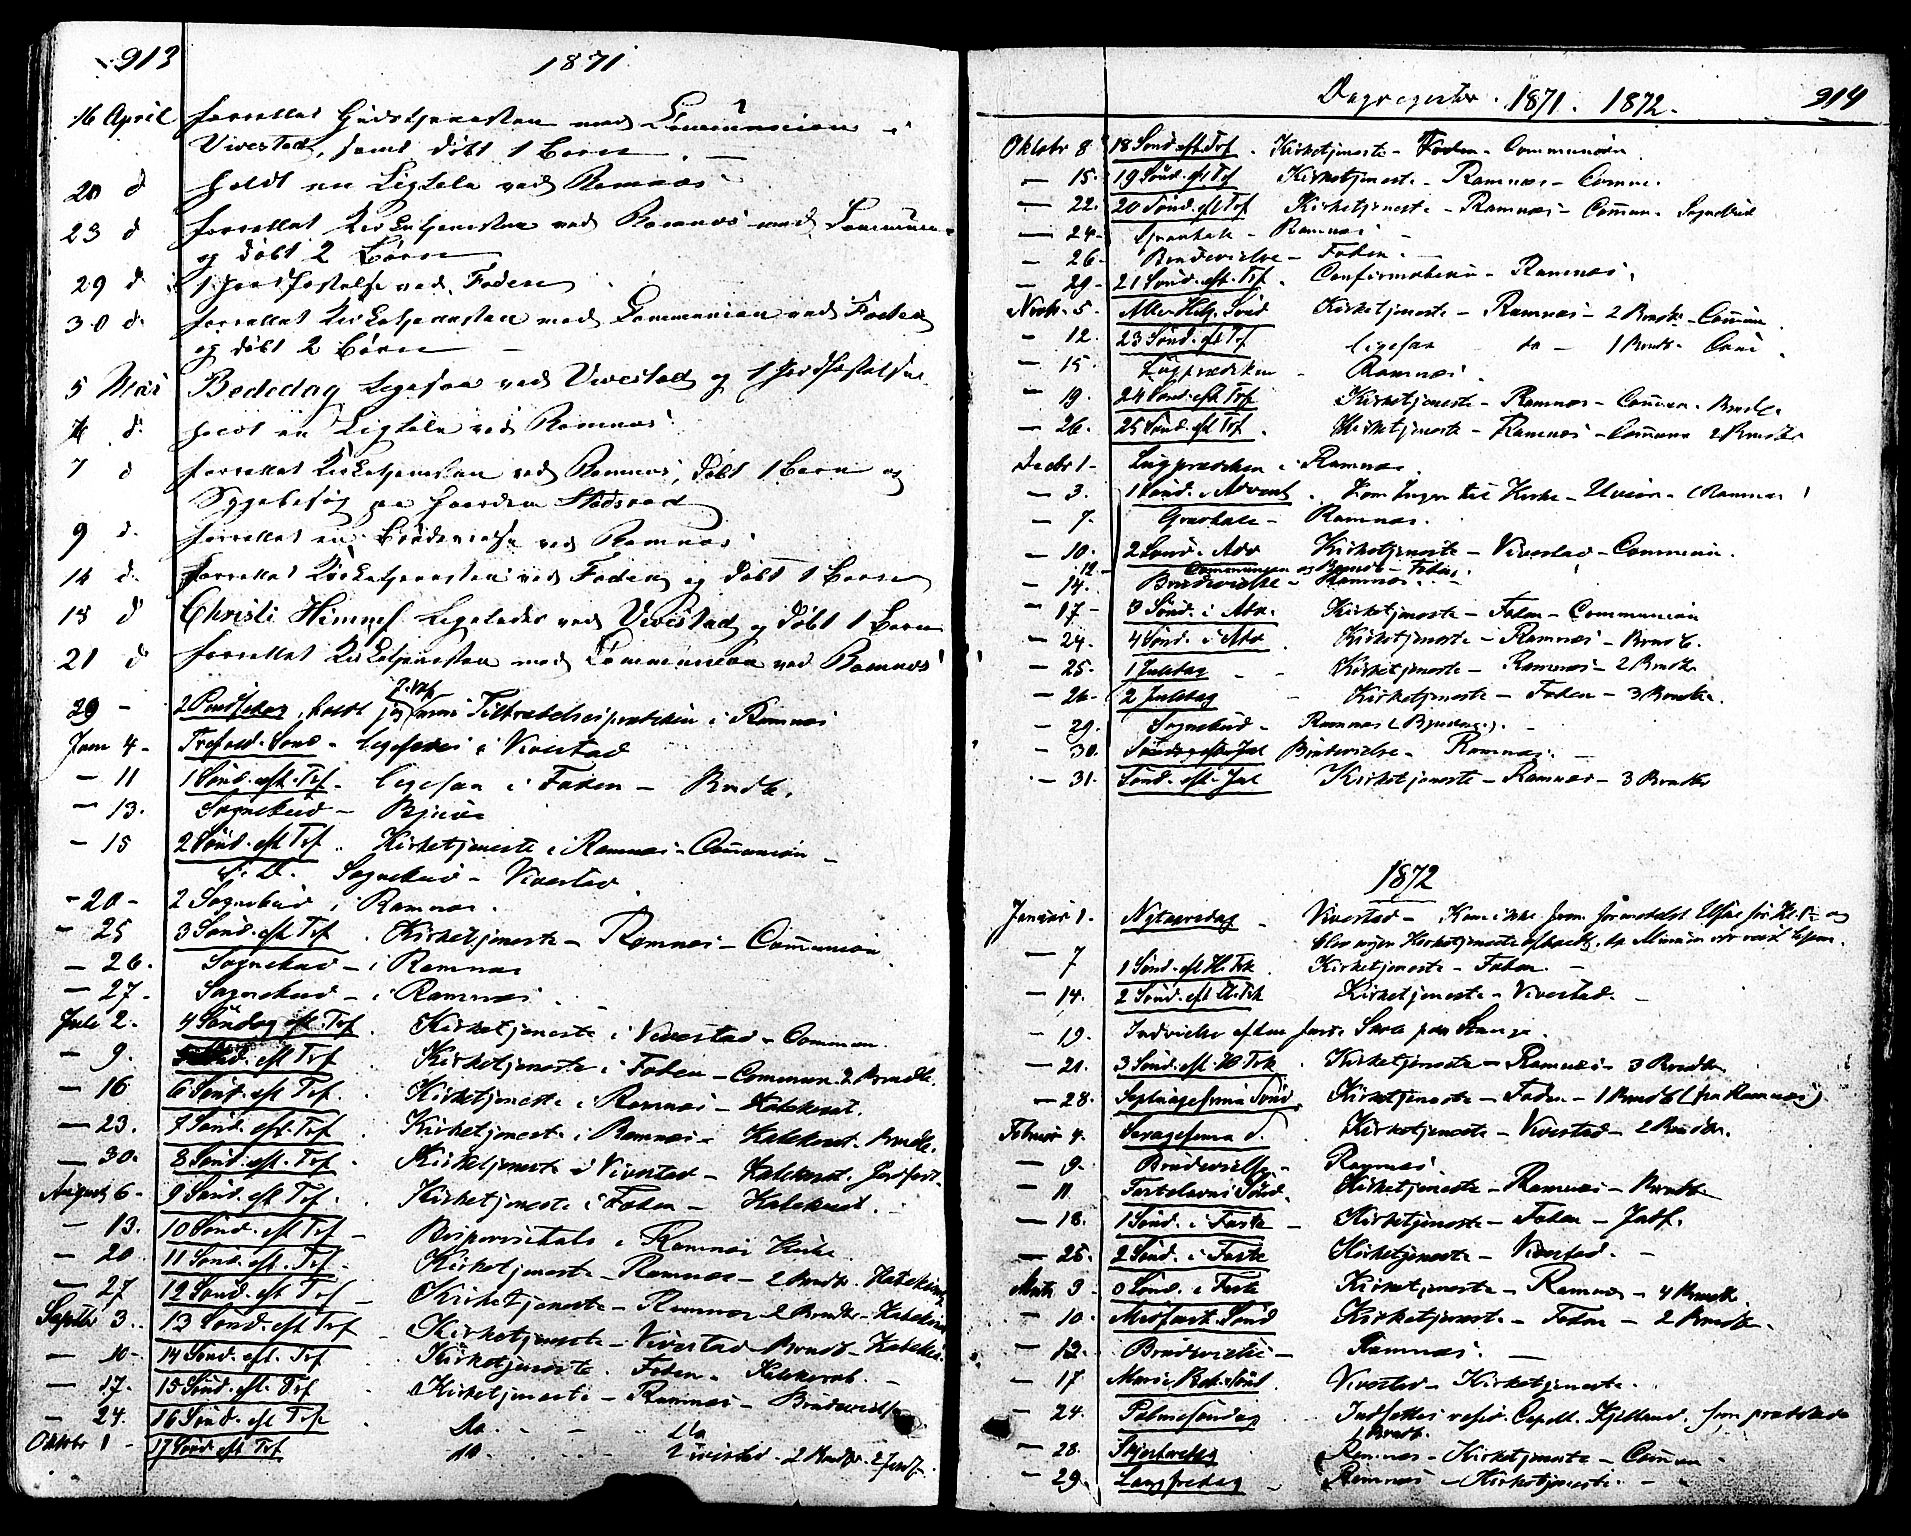 913
1871
16 April forrettet Gudstjenesten med Communion i
Vivestad, samt døbt 1 Barn. —
20 d holdt en Ligtale ved Ramnæs
23 d forrettet Kirketjenesten ved Ramnæs med Commun.
og døbt 2 Børn
29 d 1 Jordfæstelse ved Foden
30 d. forrettet Kirketjenesten med Communion ved Foden
og døbt 2 Børn —
5 Mai Bededag Ligesaa ved Vivestad og 1 Jordfæstelse
d. holdt en Ligtale ved Ramnæs
7 d forrettet Kirketjenesten ved Ramnæs, døbt 1 Barn og
Sygebesøg paa
9 d. forrettet en Brudevielse ved Ramnæs
14 d. forrettet Kirketjenesten ved Foden og døbt 1 Barn
18 d Christi Himmelf. Ligeledes ved Vivestad og døbt 1 Barn
21 d forrettet Kirketjenesten med Communion ved Ramnæs
29 - 2 Pindsedag, holdt jeg min Tiltrædelsesprædiken i Ramnæs
Juni 4 - Trefold. Sønd - Ligesaa i Vivestad
— 11 1 Sønd. eft. Trf. Ligesaa i Foden — Brudv.
— 13. Sognebud —
— 18 2 Sønd. eft Trf .. Kirketjeneste i Ramnæs - Communion —
S. D. Sognebud - Vivestad.
- 20 - 2 Sognebud i Ramnæs.
— 25 3 Sønd. eft Trf . Kirketjeneste - Ramnæs - Communion
— 26. Sognebud - i Ramnæs
— 27. Sognebud - i Ramnæs
Juli 2. 4 Søndag eft. Trf. Kirketjeneste i Vivestad - Commun.
— 9. eft Trf Kirketjeneste i Foden - Commun. 2 Brudv.
— 16 6 Sønd. eft Trf. Kirketjeneste i Ramnæs - Katekisat.
— 23. 7 Sønd. eft. Trf . Kirketjeneste i Ramnæs - Katekisat. Brudv.
— 30. 8 Sønd. eft. Trf . Kirketjeneste i Vivestad - Katekisat. Jordfæst.
August 6 - 9 Sønd. eft Trf. Kirketjeneste i Foden - Katekisat.
— 13. 10 Sønd. eft Trf - Bispevisitats i Ramnæs Kirke
— 20 11 Sønd. eft. Trf. Kirketjeneste - Ramnæs - 2 Brudv. Katekisat
— 27 12 Sønd. eft Trf - Kirketjeneste - Ramnæs 2 Brudv. - Katekisat
Septbr 3. 13 Sønd. eft Trf - Kirketjeneste - Vivestad Brudv - Katekis.
— 10. 14 Sønd. eft. Trf Kirketjeneste. Foden - Katekisat. —
— 17. 15 Sønd. eft. Trf . Kirketjeneste - Ramnæs - Brudevielse
— 24. 16 Sønd. eft Trf. do - - - do
Oktobr 1 - 17 Sønd. eft Trf do - Vivestad. 2 Brudv. 2 Jordf.
Dagregister. 1871. 1872.
914
Oktobr 8 18 Sønd eft. Trf . Kirketjeneste - Foden - Communion
— 15. 19 Sønd. eft Trf Kirketjeneste - Ramnæs - Commu.
— 22. 20 Sønd. eft Trf Kirketjeneste - Ramnæs - Commun. Sognebud
— 24. Gravtale - Ramnæs —
— 26. Brudevielse - Foden. —
— 29. 21 Sønd. eft. Trf . Confirmation - Ramnæs.
Novbr. 5. Alle Helg. Sønd Kirketjeneste - Ramnæs - 2 Brudv - Commun
— 12. 23 Sønd. eft Trf ligesaa do — 1 Brudv. Comm.
— 15. Ligprædiken - Ramnæs.
— 19. 24 Sønd. eft Trf Kirketjeneste - Ramnæs - Commun. Brudv.
— 26. 25 Sønd. eft Trf . Kirketjeneste - Ramnæs - Commun 2 Brudv
Decbr 1 - Ligprædiken i Ramnæs.
— 3. 1 Sønd. i Advent . Kom Ingen til Kirke - Uveir - (Ramnæs)
— 7. Gravtale - Ramnæs.
— 10. 2 Sønd. Adv Kirketjeneste - Vivestad - Communion.
12. Communion og Brudv - Foden.
— 14. Brudevielse - Ramnæs. —
— 17 - 3 Sønd. i Adv. Kirketjeneste - Foden - Communion
— 24. 4 Sønd. i Adv . Kirketjeneste - Ramnæs - Brudv.
— 25. 1 Juledag - - Kirketjeneste - Ramnæs - 2 Brudv
— 26. 2 Juledag - Kirketjeneste - Foden - 3 Brudv.
— 29. Sognebud - Ramnæs -
— 30. Brudevielse - Ramnæs. —
— 31. Sønd. eft. Jul Kirketjeneste - Ramnæs - 3 Brudv
1872
Januar 1. Nytaarsdag - Vivestad - Kom ikke frem formedelst og
blev ingen Kirketjeneste
— 7 1 Sønd. eft H. Trk . Kirketjeneste - Foden —
— 14. 2 Sønd. eft H. Trk Kirketjeneste - Vivestad. —
— 19. Indvielse af
— 21. 3 Sønd. eft. H Trk . Kirketjeneste - Ramnæs - 3 Brudv
— 28. Septuagesima Sønd. Kirketjeneste - Foden - 1 Brudv (fra Ramnæs)
Februar 4. Sexagesima d. Kirketjeneste - Vivestad - 2 Brudv.
— 9. Brudevielse - Ramnæs.
— 11 Fastelavns Sønd. Kirketjeneste - Ramnæs - Brudv
— 18. 1 Sønd. i Faste - Kirketjeneste - Foden - Jordf.
— 25. 2 Sønd. i Faste Kirketjeneste - Vivestad. —
Marts 3 3 Sønd. i Faste Kirketjeneste - Ramnæs - 4 Brudv.
— 10. Midfaste Sønd Kirketjeneste - Foden - 2 Brudv.
— 12. Brudevielse — Ramnæs. —
— 17 Mariæ Beb. Sønd . Vivestad - Kirketjeneste.
— 24. Palmesøndag Indsattes resid. Capell. Kjelland, som prædikede
1 Brudv.
— 28. Skjærtorsdag Ramnæs - Kirketjeneste - Commun -
— 29. Langfredag Ramnæs - Kirketjeneste. -